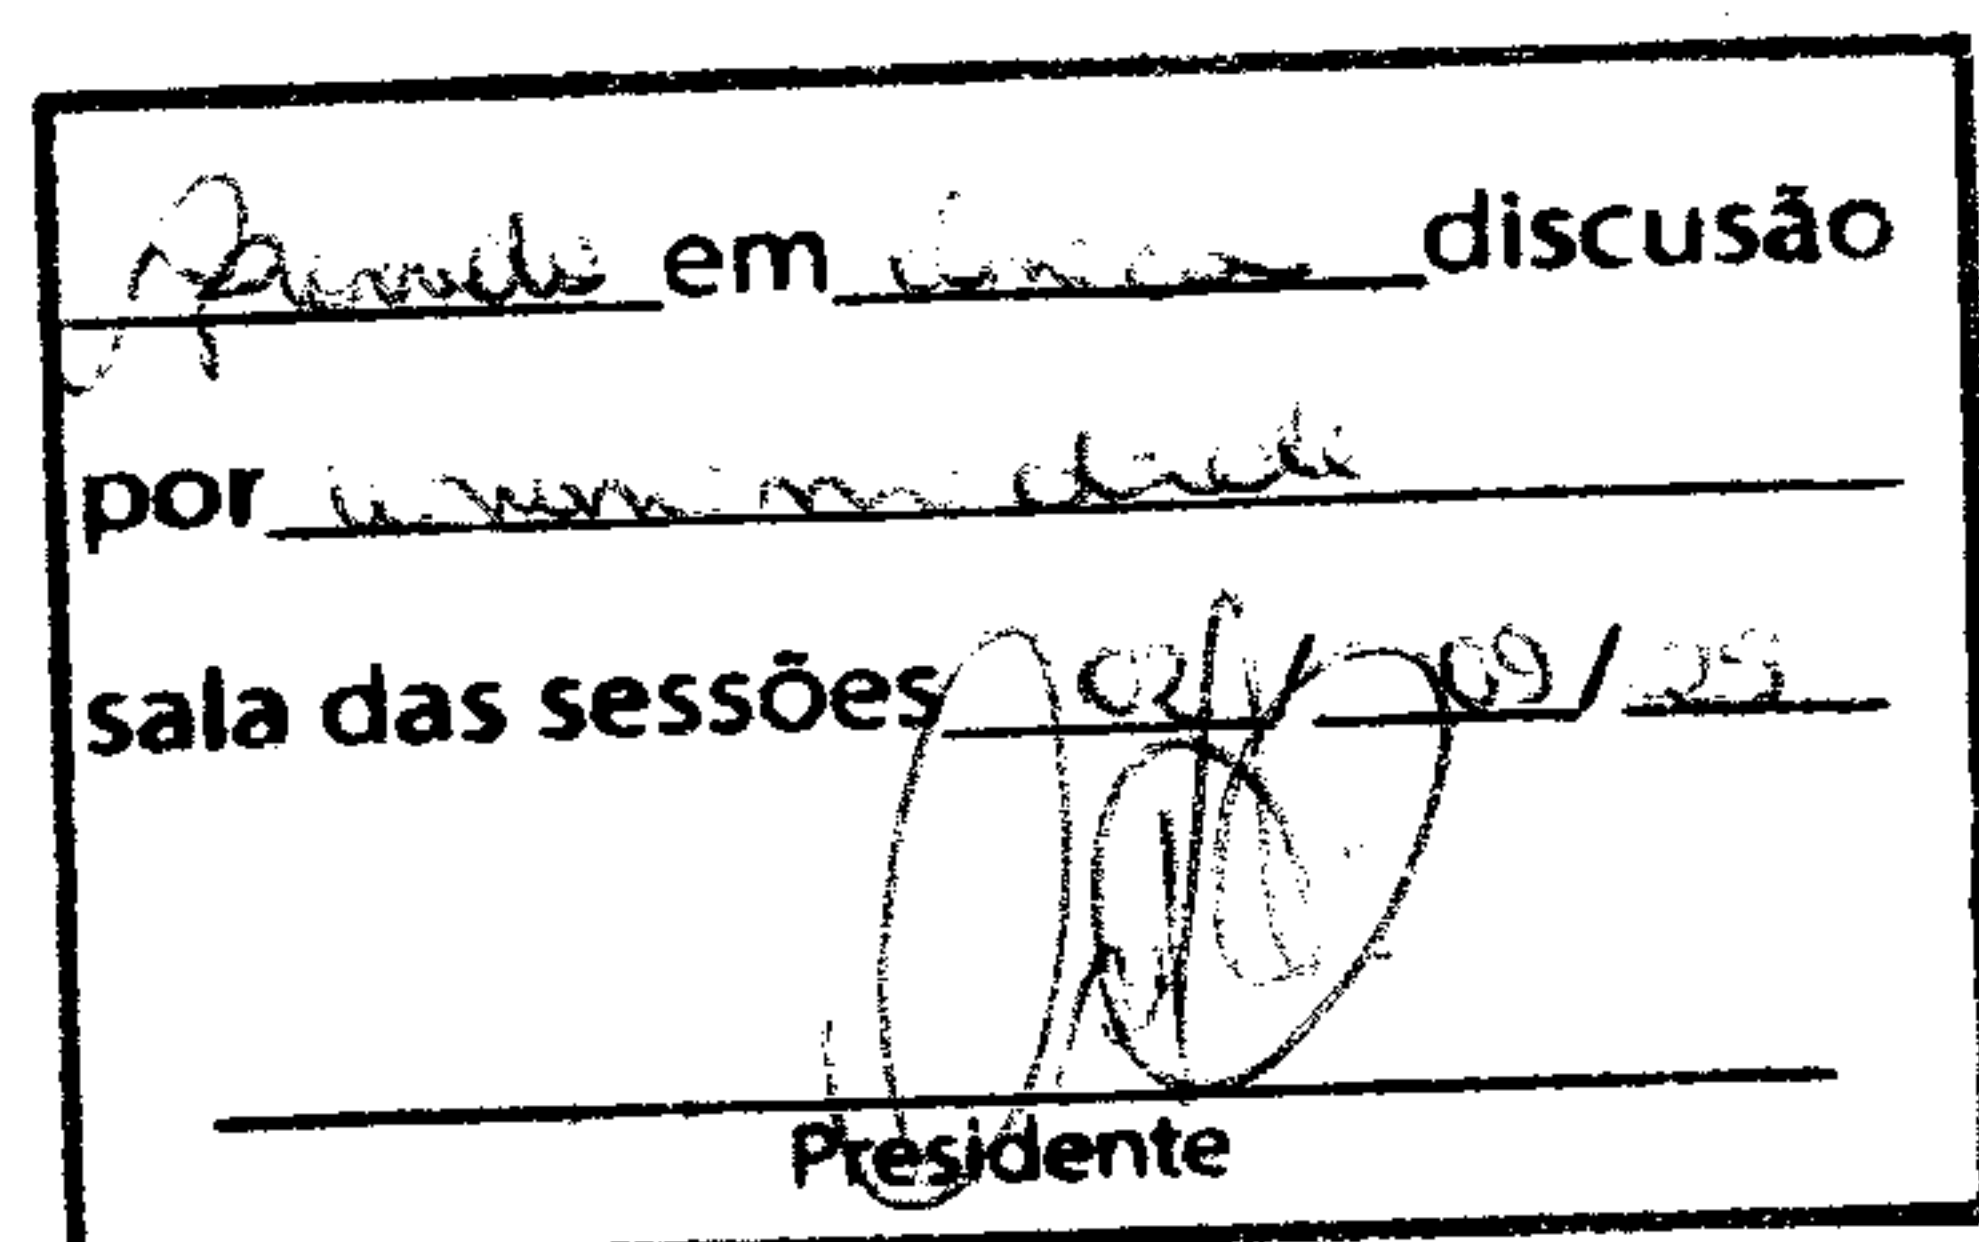 Aprovado em única discusão
por unanimidade
sala das sessões 02/09/25
Presidente